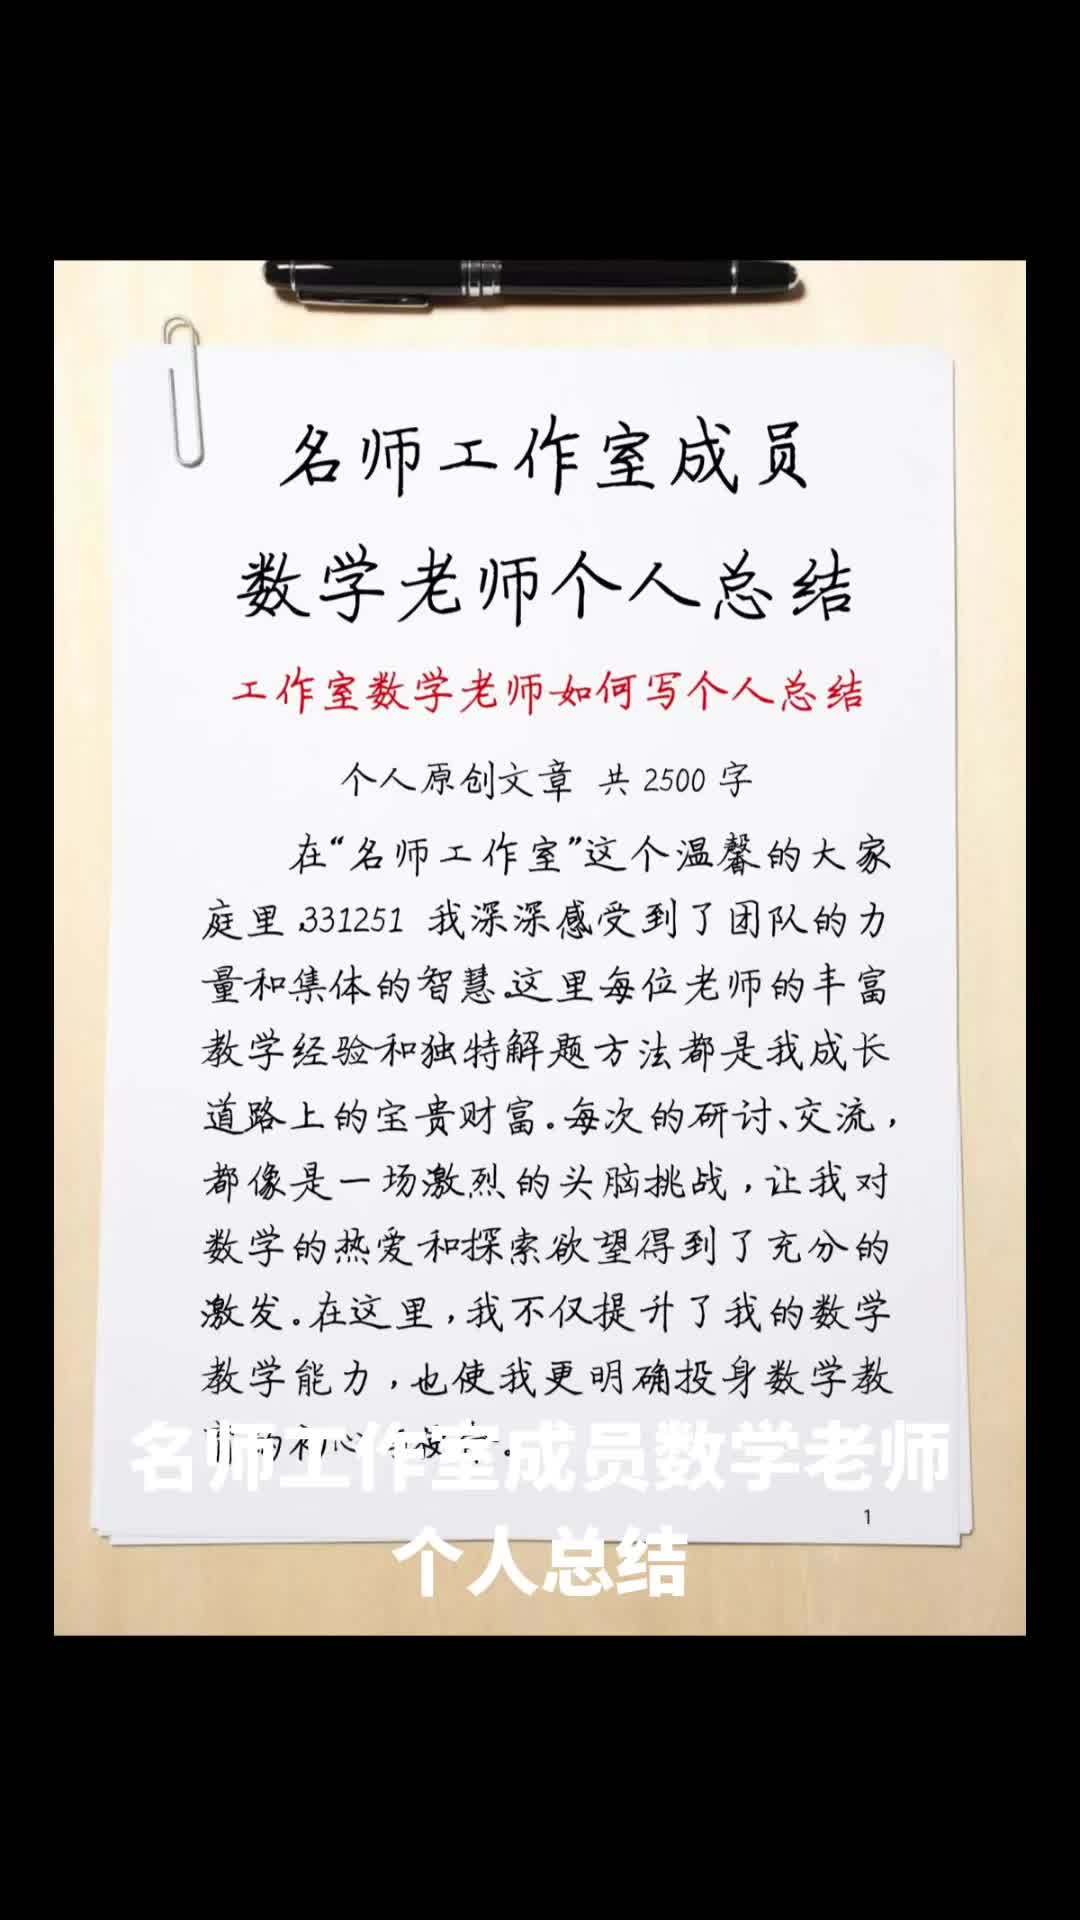 名师工作室成员
数学老师个人总结
工作室数学老师如何写个人总结
个人原创文章 共2500字
在“名师工作室”这个温馨的大家
庭里,331251 我深深感受到了团队的力
量和集体的智慧。这里每位老师的丰富
教学经验和独特解题方法都是我成长
道路上的宝贵财富。每次的研讨、交流，
都像是一场激烈的头脑挑战，让我对
数学的热爱和探索欲望得到了充分的
激发。在这里，我不仅提升了我的数学
教学能力，也使我更明确投身数学教
的初心
名师工作室成员数学老师
个人总结
1